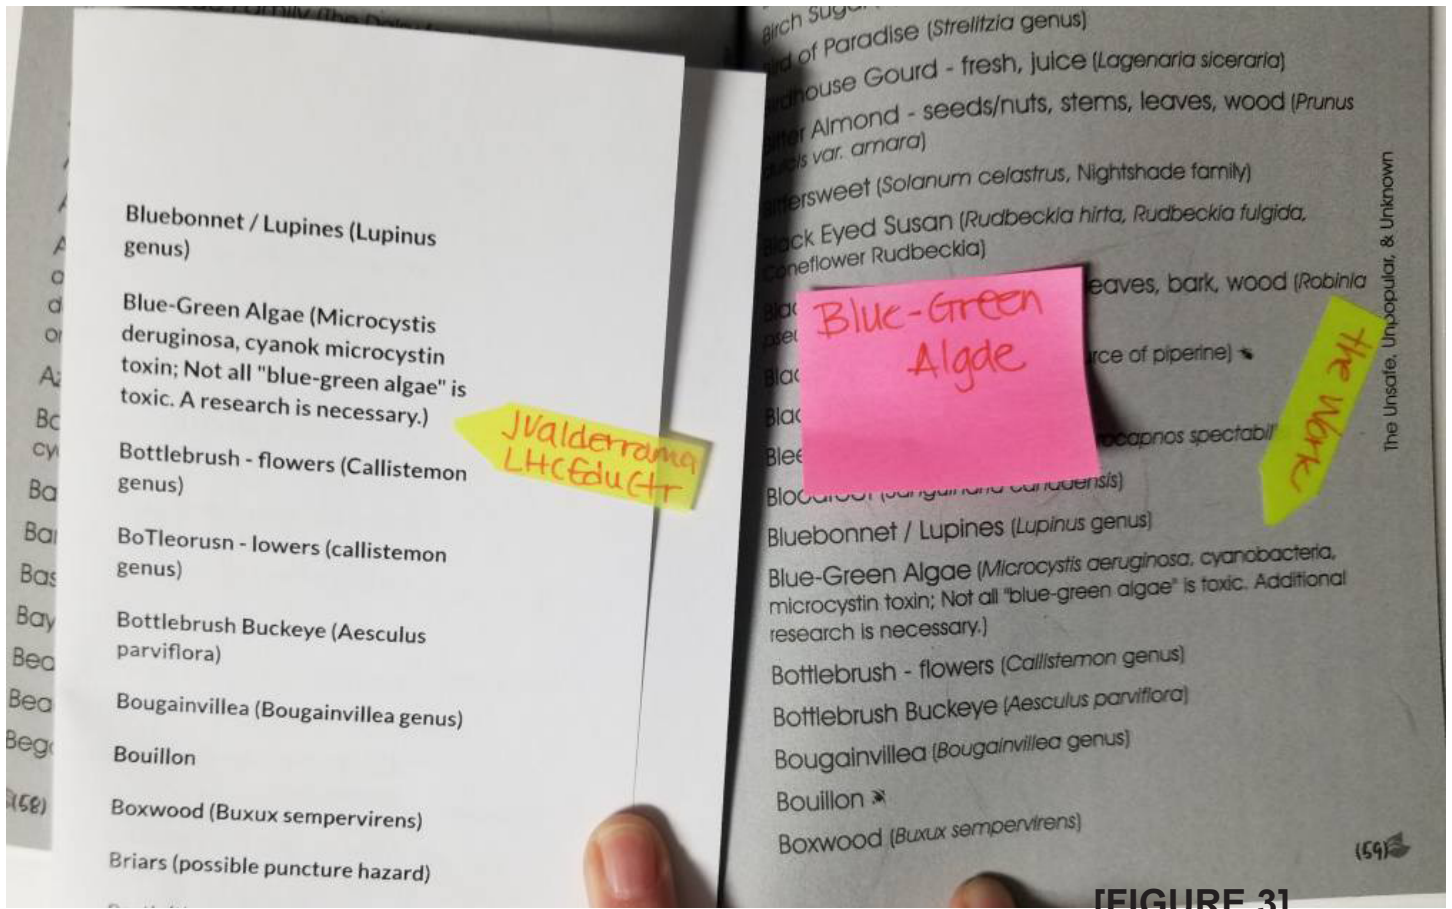 Bluebonnet / Lupines (Lupinus
genus)
Blue-Green Algae (Microcystis
deruginosa, cyanok microcystin
toxin; Not all "blue-green algae" is
toxic. A research is necessary.)
Bottlebrush - flowers (Callistemon
genus)
BoTleorusn - lowers (callistemon
genus)
Bottlebrush Buckeye (Aesculus
parviflora)
Bougainvillea (Bougainvillea genus)
Bouillon
Boxwood (Buxux sempervirens)
Briars (possible puncture hazard)
JValderrama
LHCEduCtr
(58)
Birch
of Paradise (Strelitzia genus)
Gourd - fresh, juice (Lagenaria siceraria)
Almond - seeds/nuts, stems, leaves, wood (Prunus
var. amara)
(Solanum celastrus, Nightshade family)
Eyed Susan (Rudbeckia hirta, Rudbeckia fulgida,
Rudbeckia)
leaves, bark, wood (Robinia
of piperine)
Blue-Green
Algae
the work
spectabil
Bluebonnet / Lupines (Lupinus genus)
Blue-Green Algae (Microcystis aeruginosa, cyanobacteria,
microcystin toxin; Not all "blue-green algae" is toxic. Additional
research is necessary.)
Bottlebrush - flowers (Callistemon genus)
Bottlebrush Buckeye (Aesculus parviflora)
Bougainvillea (Bougainvillea genus)
Bouillon
Boxwood (Buxux sempervirens)
The Unsafe, Unpopular, & Unknown
(59)
[FIGURE 3]